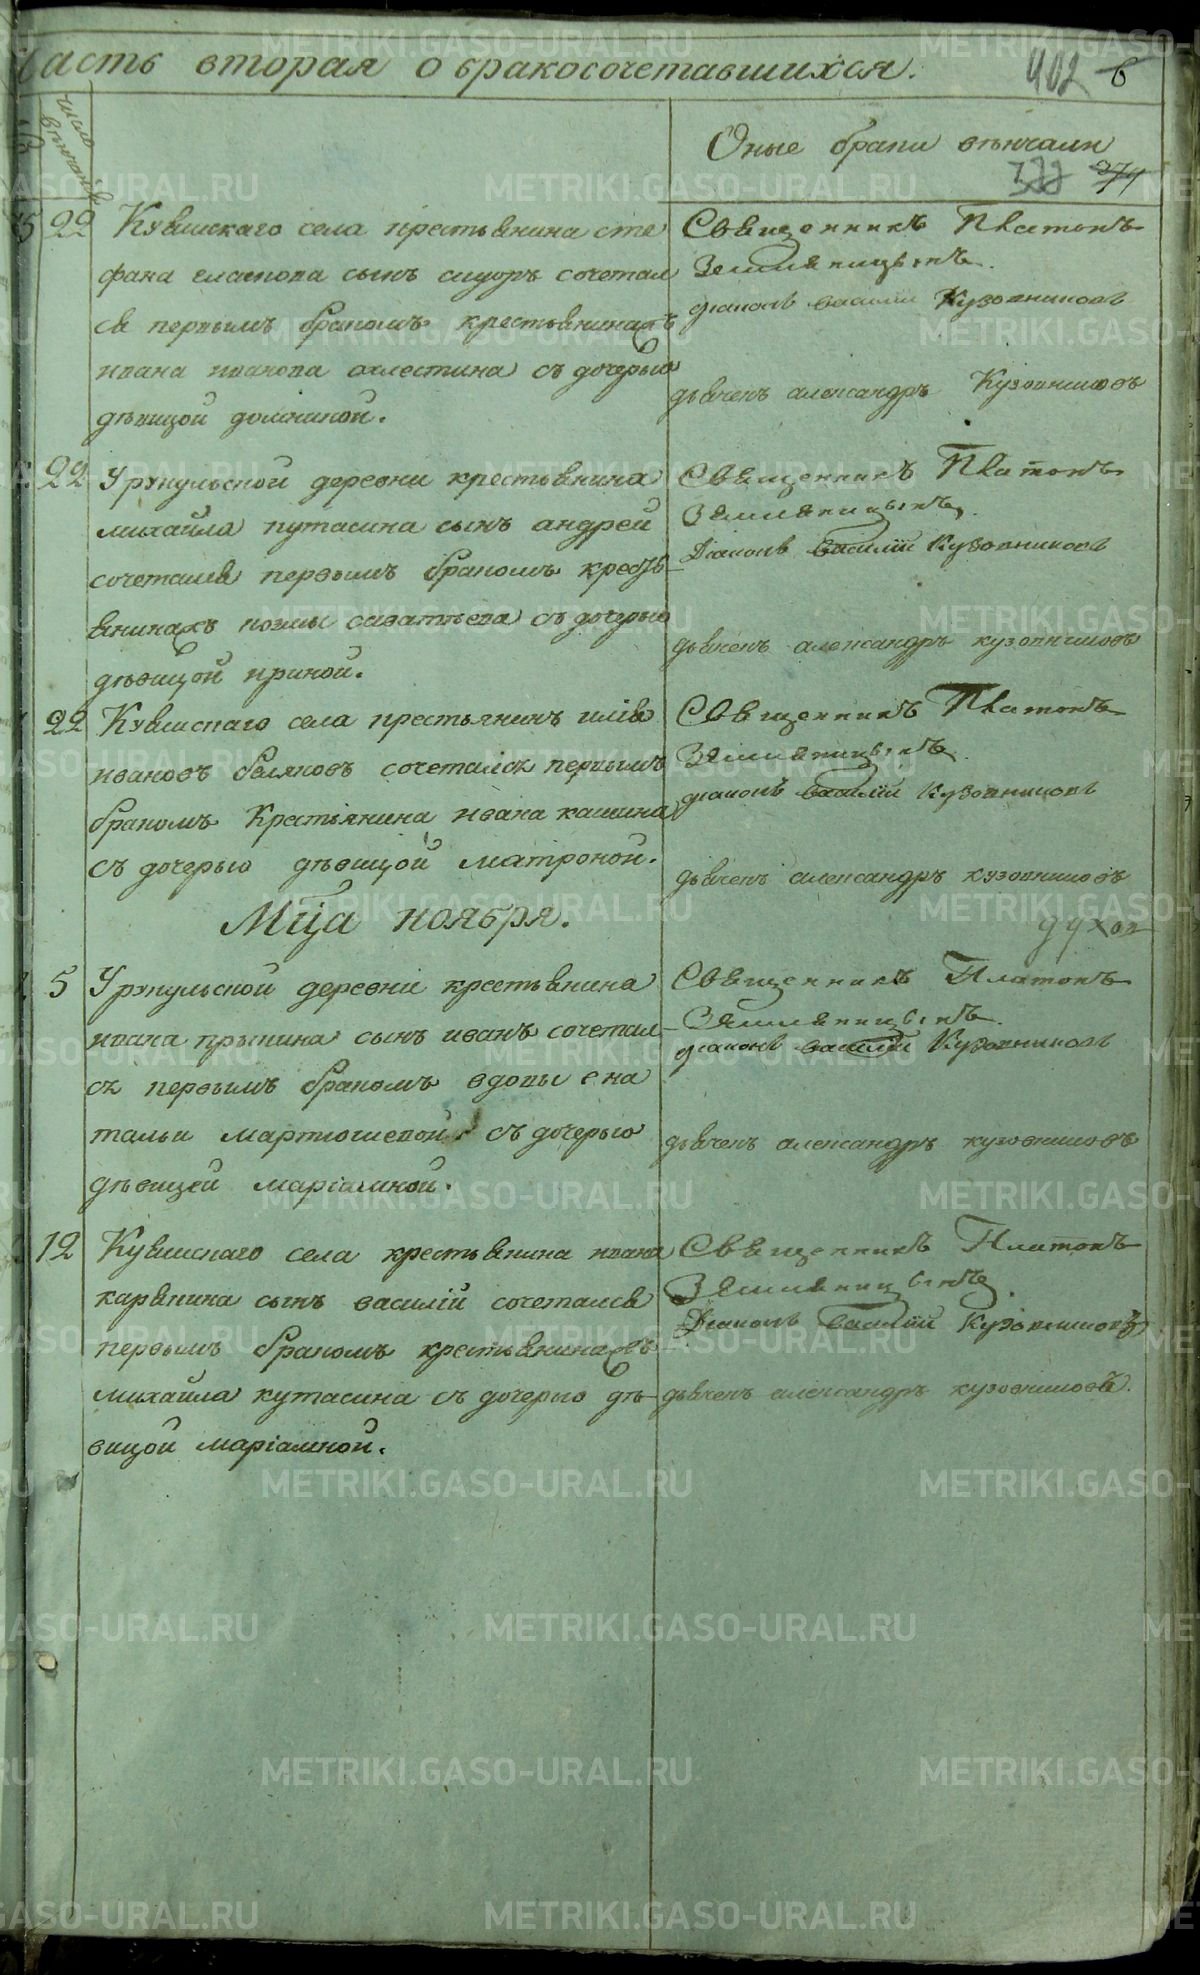 Часть вторая о бракосочетавшихся.
402 6
число венчанія
Оные браки вѣнчали
22 Кувшискаго села крестьянина Сте
фана сынъ сидоръ сочетал
ся первымъ бракомъ крестьянина
ивана иванова ахлестина съ дочерью
дѣвицой домникой.
Священникъ Платонъ
Земляницынъ.
діаконъ василій Кузовниковъ
дьячекъ александръ Кузовниковъ
22 Урукульской деревни крестьянина
михайла путасина сынъ андрей
сочетался первымъ бракомъ кресть
янина саватѣева съ дочерью
дѣвицой ириной.
Священникъ Платонъ
Земляницынъ.
Діаконъ василій Кузовниковъ
дьячекъ александръ кузовниковъ
22 Куяшскаго села крестьянинъ илія
ивановъ беляковъ сочетался первымъ
бракомъ Крестьянина ивана кашина
съ дочерью дѣвицой матроной.
Священникъ Платонъ
Земляницынъ
діаконъ василій Кузовниковъ
дьячекъ александръ кузовниковъ
Мца ноября.
5 Урукульской деревни крестьянина
ивана сынъ иванъ сочетал
ся первымъ бракомъ вдовыена
тальи мартюшевой съ дочерью
дѣвицей маріамной.
Священникъ Платонъ
Земляницынъ.
діаконъ василій Кузовниковъ
дьячекъ александръ кузовниковъ
12 Куяшскаго села крестьянина ивана
карянина сынъ василій сочетался
первымъ бракомъ крестьянина
михайла кутасина съ дочерью дѣ
вицой маріамной.
Священникъ Платонъ
Земляницынъ.
Діаконъ василій Кузовниковъ
дьячекъ александръ кузовниковъ.
METRIKI.GASO-URAL.RU